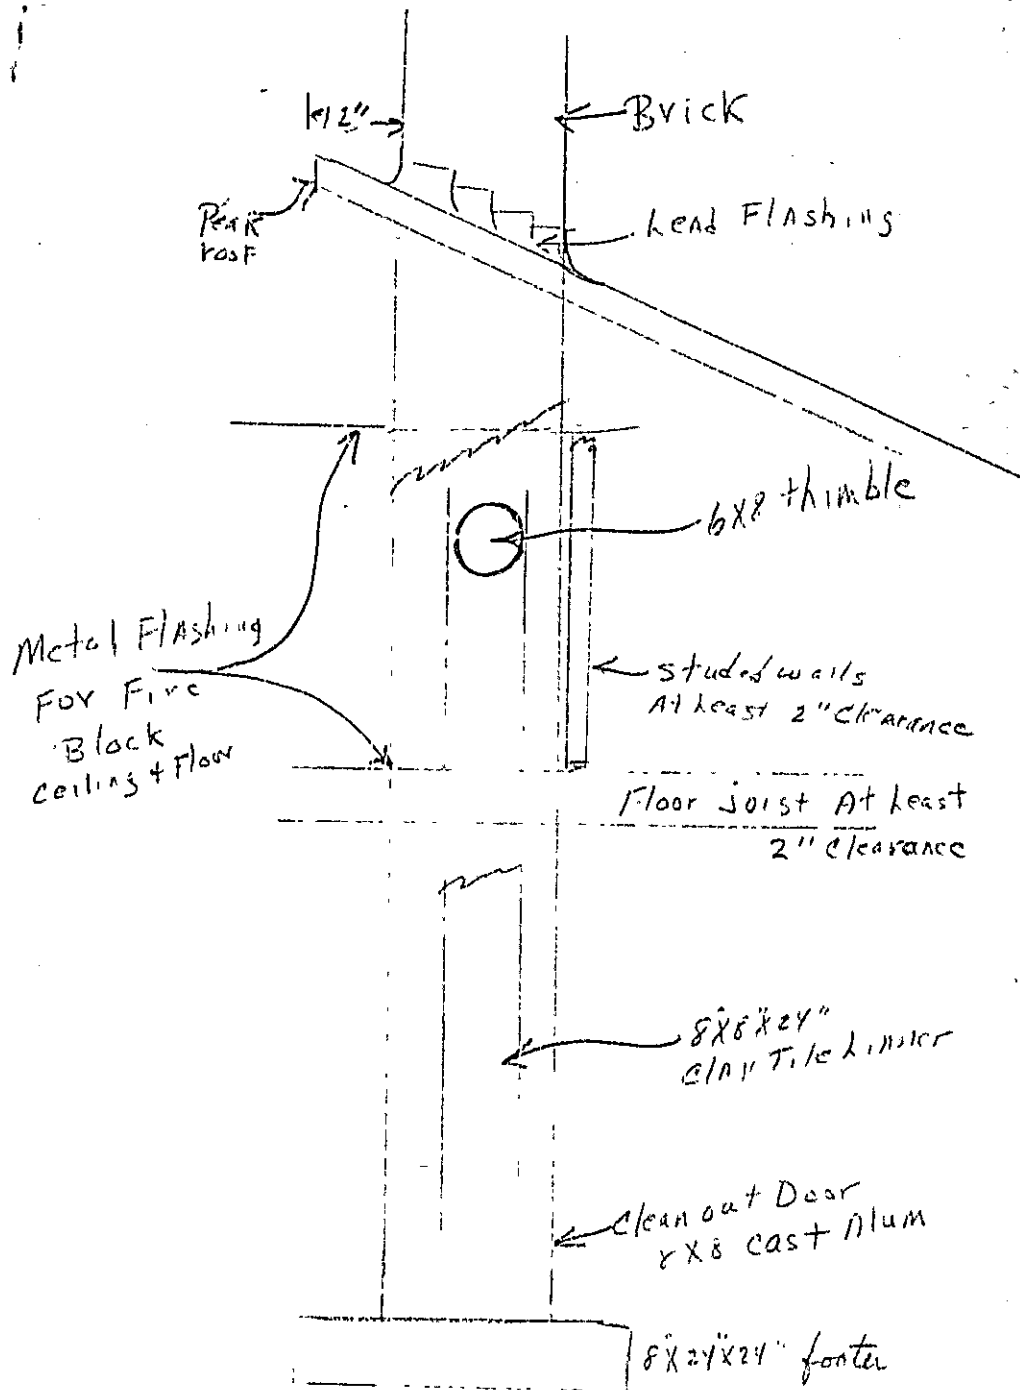 12"
Brick
Peak
roof
Lead Flashing
6X8 thimble
Metal Flashing
For Fire
Block
ceiling + Floor
studed walls
At Least 2" Clearance
Floor joist At Least
2" Clearance
8"X8"X24"
Clay Tile Linner
Clean out Door
8X8 cast Alum
8"X24"X24" footer